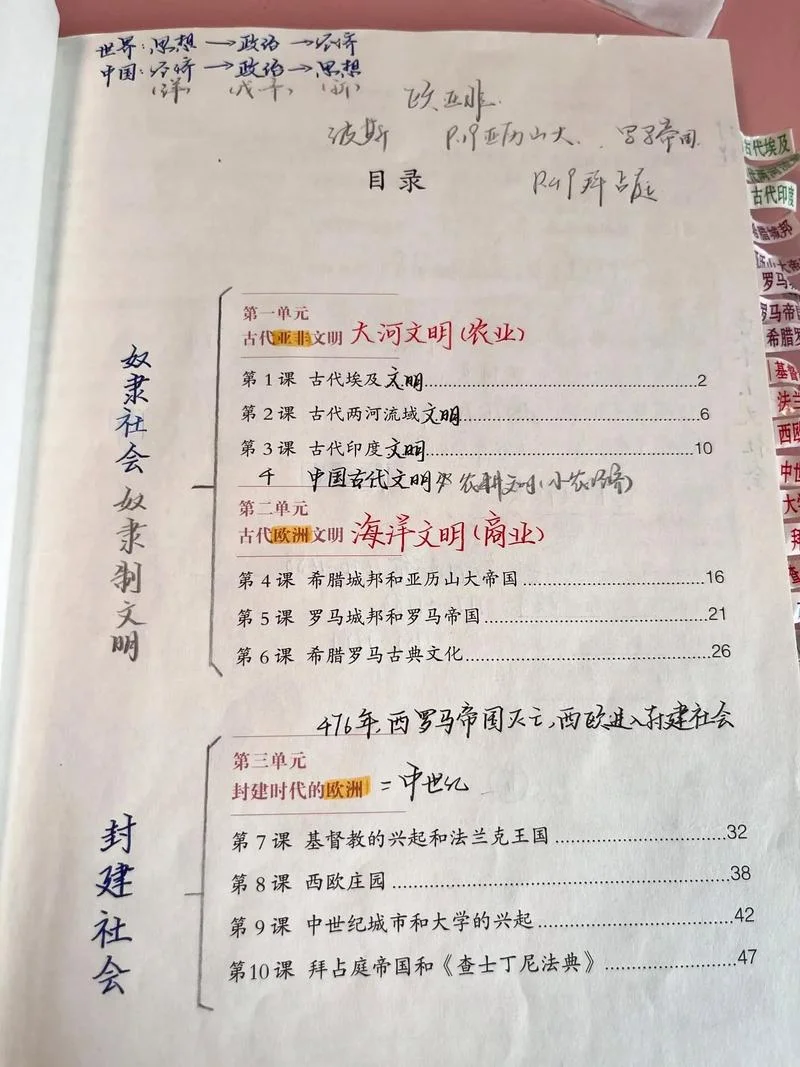 世界：思想→政治→经济
中国：经济→政治→思想
(洋) (戊辛) (新)
欧亚非
波斯 P.19亚历山大、罗马帝国
目录 P.49拜占庭
第一单元
古代亚非文明 大河文明(农业)
第1课 古代埃及文明 2
第2课 古代两河流域文明 6
第3课 古代印度文明 10
中国古代文明 农耕文明(小农经济)
第二单元
古代欧洲文明 海洋文明(商业)
第4课 希腊城邦和亚历山大帝国 16
第5课 罗马城邦和罗马帝国 21
第6课 希腊罗马古典文化 26
奴隶社会 奴隶制文明
476年,西罗马帝国灭亡,西欧进入封建社会
第三单元
封建时代的欧洲 =中世纪
第7课 基督教的兴起和法兰克王国 32
第8课 西欧庄园 38
第9课 中世纪城市和大学的兴起 42
第10课 拜占庭帝国和《查士丁尼法典》 47
封建社会
古代埃及
古代两河流域
古代印度
希腊城邦
罗马帝
希腊罗
基督
法兰
西欧
中世
大学
拜
查